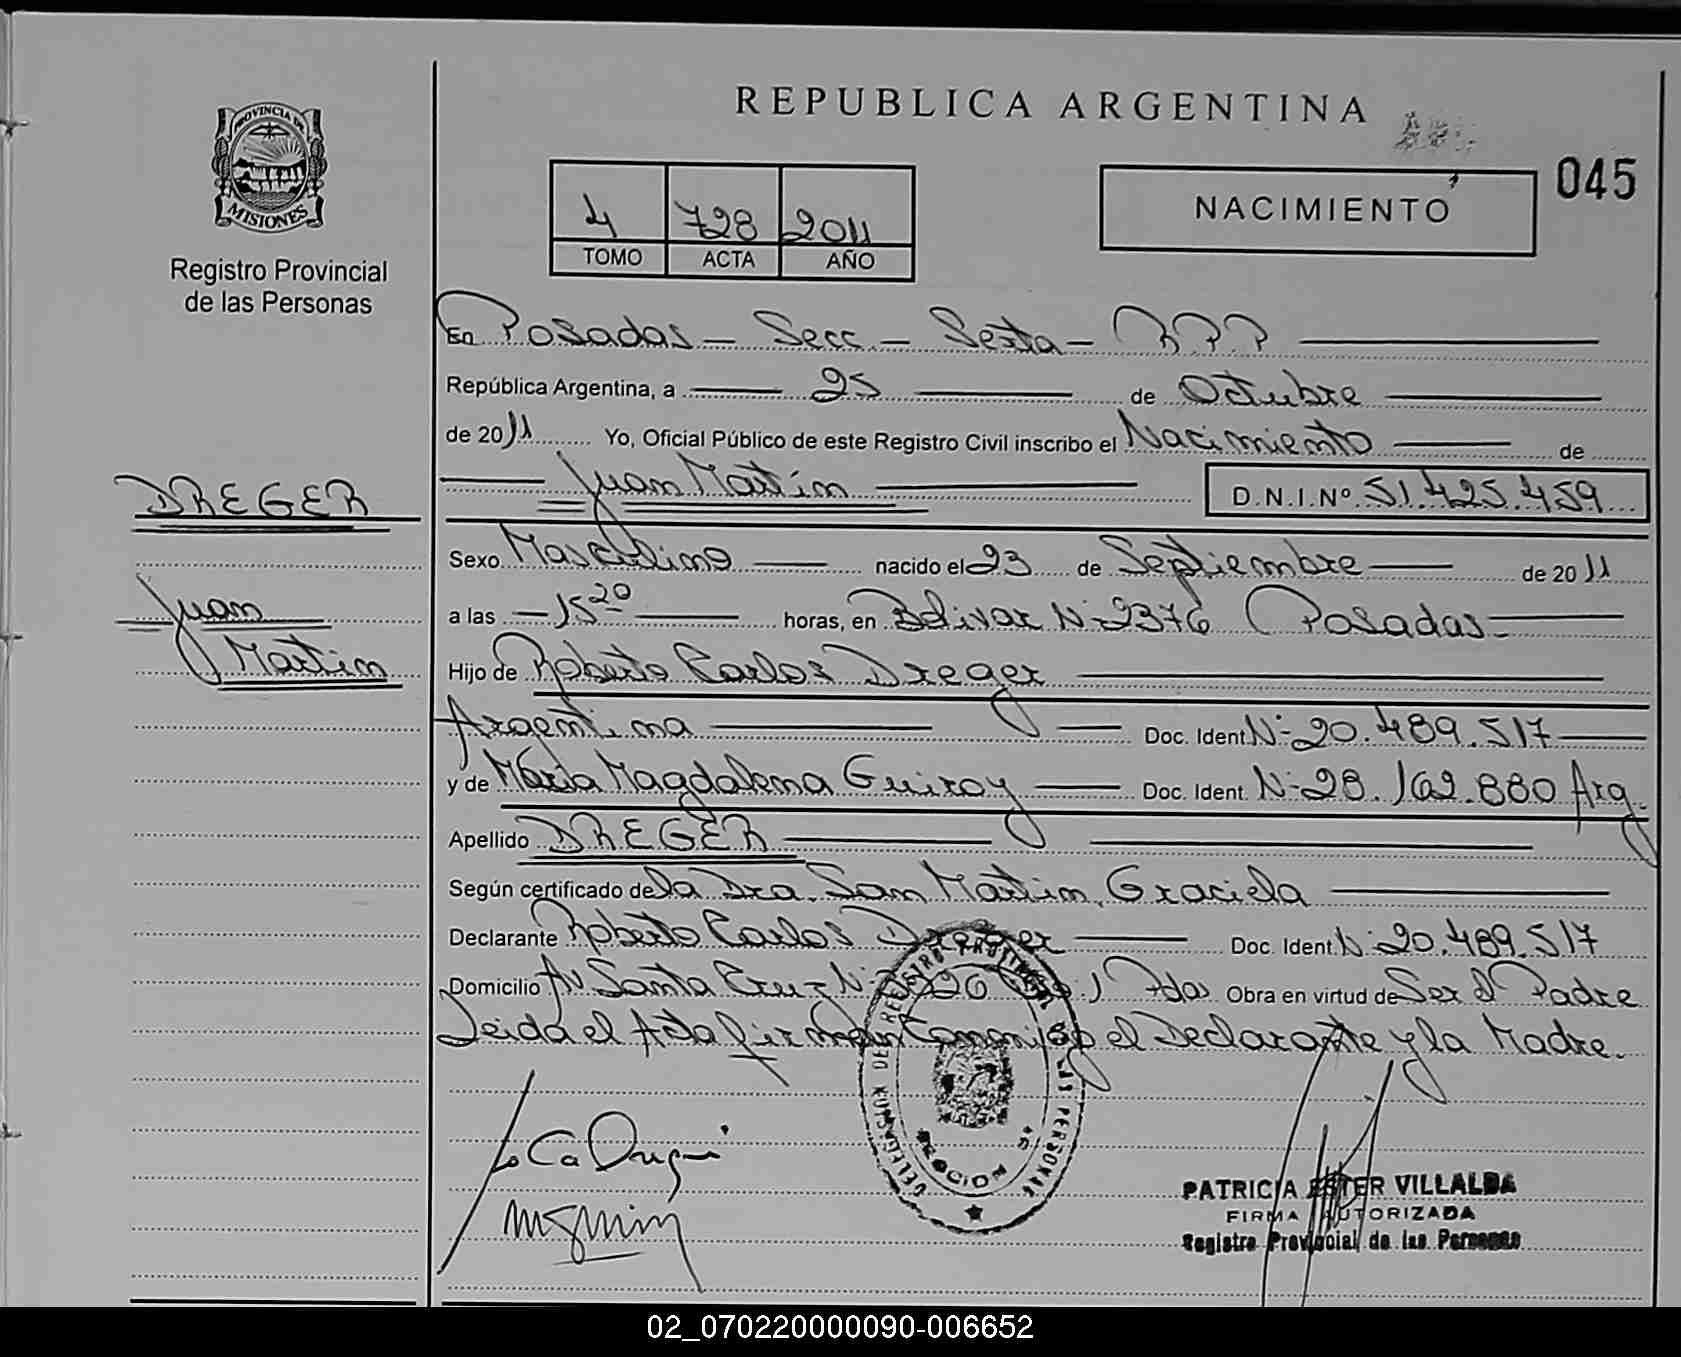 REPUBLICA ARGENTINA
PROVINCIA DE
MISIONES
Registro Provincial
de las Personas
4 728 2011
TOMO ACTA AÑO
NACIMIENTO
045
En Posadas – Secc – Sexta – R P P
República Argentina, a 25 de Octubre
de 2011 Yo, Oficial Público de este Registro Civil inscribo el Nacimiento de
Juan Martin D.N.I.Nº 51.425.459
DREGER
Juan
Martin
Sexo Masculino nacido el 23 de Septiembre de 2011
a las 15 20 horas, en Bolivar Nº 2376 Posadas
Hijo de Roberto Carlos Dreger
Argentina Doc. Ident. Nº 20.489.517
y de Maria Magdalena Guiroy Doc. Ident. Nº 28.162.880 Arg
Apellido DREGER
Según certificado de la Dra. San Martin, Graciela
Declarante Roberto Carlos Dreger Doc. Ident. Nº 20.489.517
Domicilio Av Santa Cruz Nº Pdas Obra en virtud de Ser el Padre
Leida el Acta firman Conmigo el Declarante y la Madre.
DELEGACION DEL REGISTRO PROVINCIAL DE LAS PERSONAS
SECCION 6
PATRICIA ESTER VILLALBA
FIRMA AUTORIZADA
Registro Provincial de las Personas
02_070220000090-006652